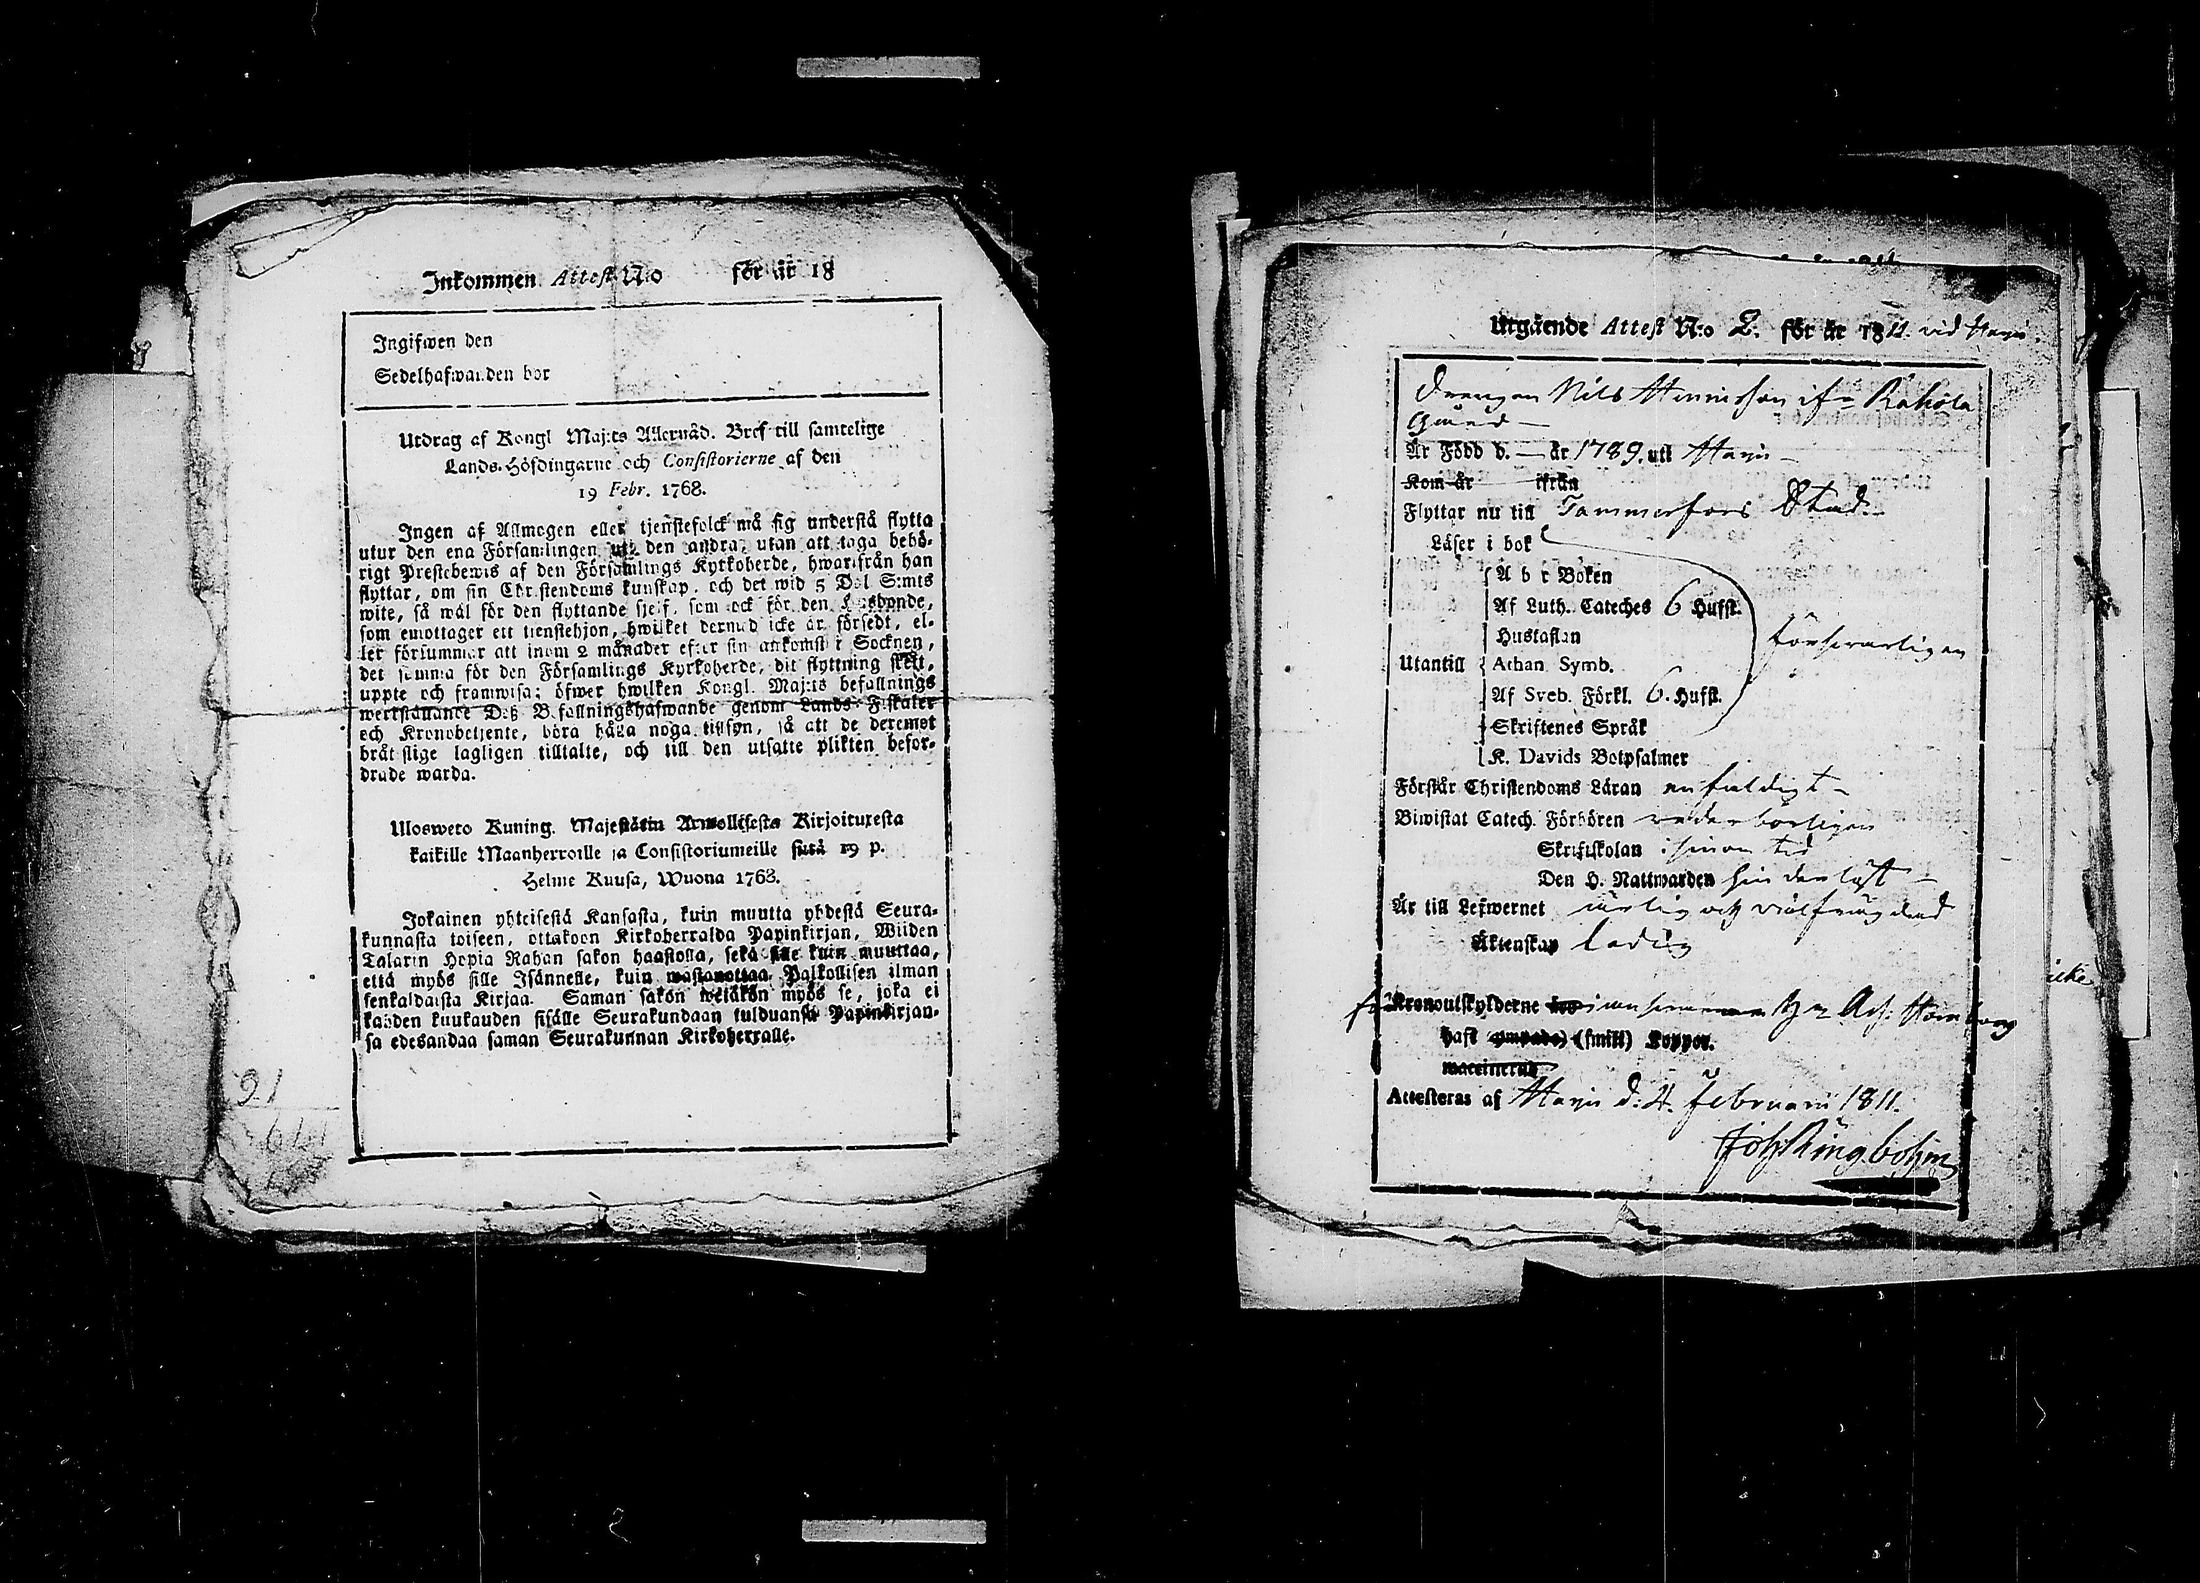 Inkommen Attest N:o för år 18
Ingifwen den
Sedelhafwanden bor
Utdrag af Kongl Maj:ts Allernåd. Bref till samtelige
Lands-Höfdingarne och Consistorierne af den
19 Febr. 1768.
Ingen af Allmogen eller tjenstefolck må sig understå flytta
utur den ena Församlingen uti den andra, utan att taga behö-
rigt Prestebewis af den Församlings Kyrkoherde, hwarifrån han
flyttar, om sin Christendoms kunskap, och det wid 5 Dal S:mts
wite, så wäl för den flyttande sjelf, som ock för den Husbonde,
som emottager ett tienstehjon, hwilket dermed icke är försedt, el-
ler försummar att inom 2 månader efter sin ankomst i Socknen,
det samma för den Församlings Kyrkoherde, dit flyttning skett,
uppte och framwisa; öfwer hwilken Kongl. Maj:ts befallnings
werkställande Deß Befallningshafwande genom Lands-Fiskaler
och Kronobetjente, böra hålla noga tillsyn, så att de deremot
bråtslige lagligen tilltalte, och till den utsatte plikten befor-
drade warda.
Ulosweto Kuning. Majestätin Armollisesta Kirjoituxesta
kaikille Maanherroille ja Consistoriumeille siitä 19 p.
Helme Kuusa, Wuona 1768.
Jokainen yhteisestä Kansasta, kuin muutta yhdestä Seura-
kunnasta toiseen, ottakoon Kirkoherralda Papinkirjan, Wiiden
Talarin Hopia Rahan sakon haastolla, sekä sille kuin muuttaa,
että myös sille Isännelle, kuin wastanottaa Palkollisen ilman
senkaldaista Kirjaa. Saman sakon wetäkön myös se, joka ei
kahden kuukauden sisälle Seurakundaan tulduansa Papinkirjan-
sa edesandaa saman Seurakunnan Kirkoherralle.
91
Utgående Attest N:o 2. för år 1811.
Drengen Nils Hinricsson ifr. Rahola
Är Född d. — år 1789. uti
Kom år ifrån
Flyttar nu till Tammerfors Stad.
Läser i bok
A b c Boken
Af Luth. Cateches 6 Hufst.
Hustaflan
försvarligen
Utantill Athan Symb.
Af Sveb. Förkl. 6. Hufst.
Skriftenes Språk
K. Davids Botpsalmer
Förstår Christendoms Läran enfaldigt
Biwistat Catech. Förhören vederbörligen
Skriftskolan i sinom tid
Den H. Nattwarden
Är till Lefwernet ärlig och välfrägdad
Äktenskap ledig
icke
Kronoutskylderne
haft ympade) (smitt) Koppor.
Attesteras af d. 4. Februarii 1811.
Joh Ringbohm